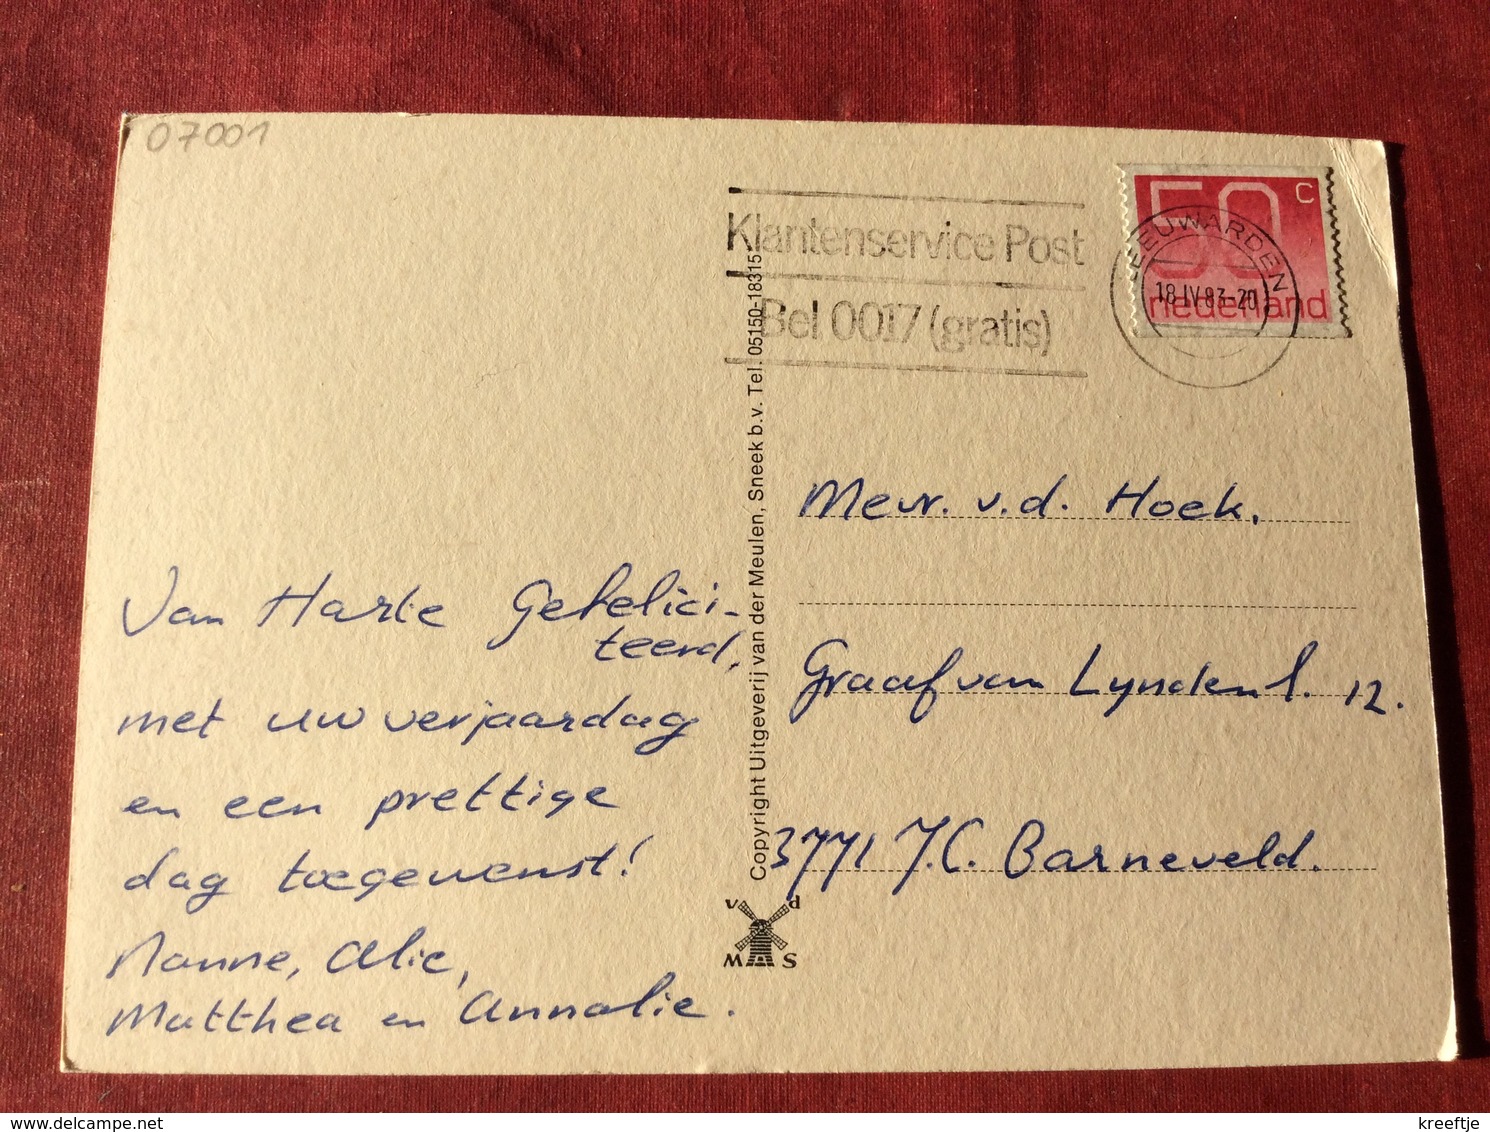 07001
Klantenservice Post
Bel 0017 (gratis)
50 c
nederland
LEEUWARDEN
18 IV 83-20
Mevr. v.d. Hoek.
Graaf van Lynden l. 12.
3771 J.C. Barneveld.
Van Harte Gefelici-
teerd,
met uw verjaardag
en een prettige
dag toegewenst!
Nanne, Alie,
Matthea en Annalie.
Copyright Uitgeverij van der Meulen, Sneek b.v. Tel. 05150-18315
v d
M S
delcampe.net
kreeftje